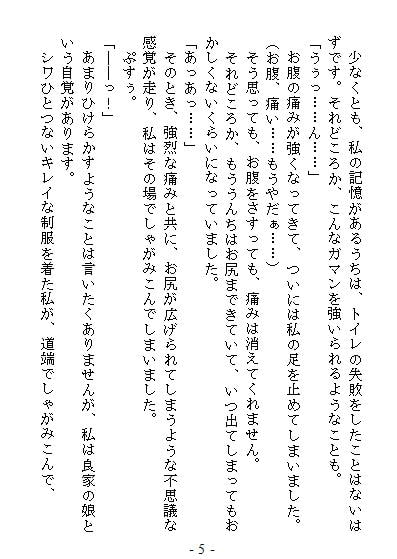 少なくとも、私の記憶があるうちは、トイレの失敗をしたことはないは
ずです。それどころか、こんなガマンを強いられるようなことも。
「うぅっ……ん……」
お腹の痛みが強くなってきて、ついには私の足を止めてしまいました。
（お腹、痛い……もうやだぁ……）
そう思っても、お腹をさすっても、痛みは消えてくれません。
それどころか、もううんちはお尻まできていて、いつ出てしまってもお
かしくないくらいになっていました。
「あっあっ……」
そのとき、強烈な痛みと共に、お尻が広げられてしまうような不思議な
感覚が走り、私はその場でしゃがみこんでしまいました。
ぷすぅ。
「――っ！」
あまりひけらかすようなことは言いたくありませんが、私は良家の娘と
いう自覚があります。
シワひとつないキレイな制服を着た私が、道端でしゃがみこんで、
- 5 -